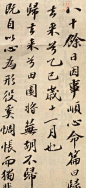 八十餘日因事順心命篇曰歸
去来兮乙巳歲十一月也
歸去来兮田園將蕪胡不歸
既自以心為形役奚惆悵而獨